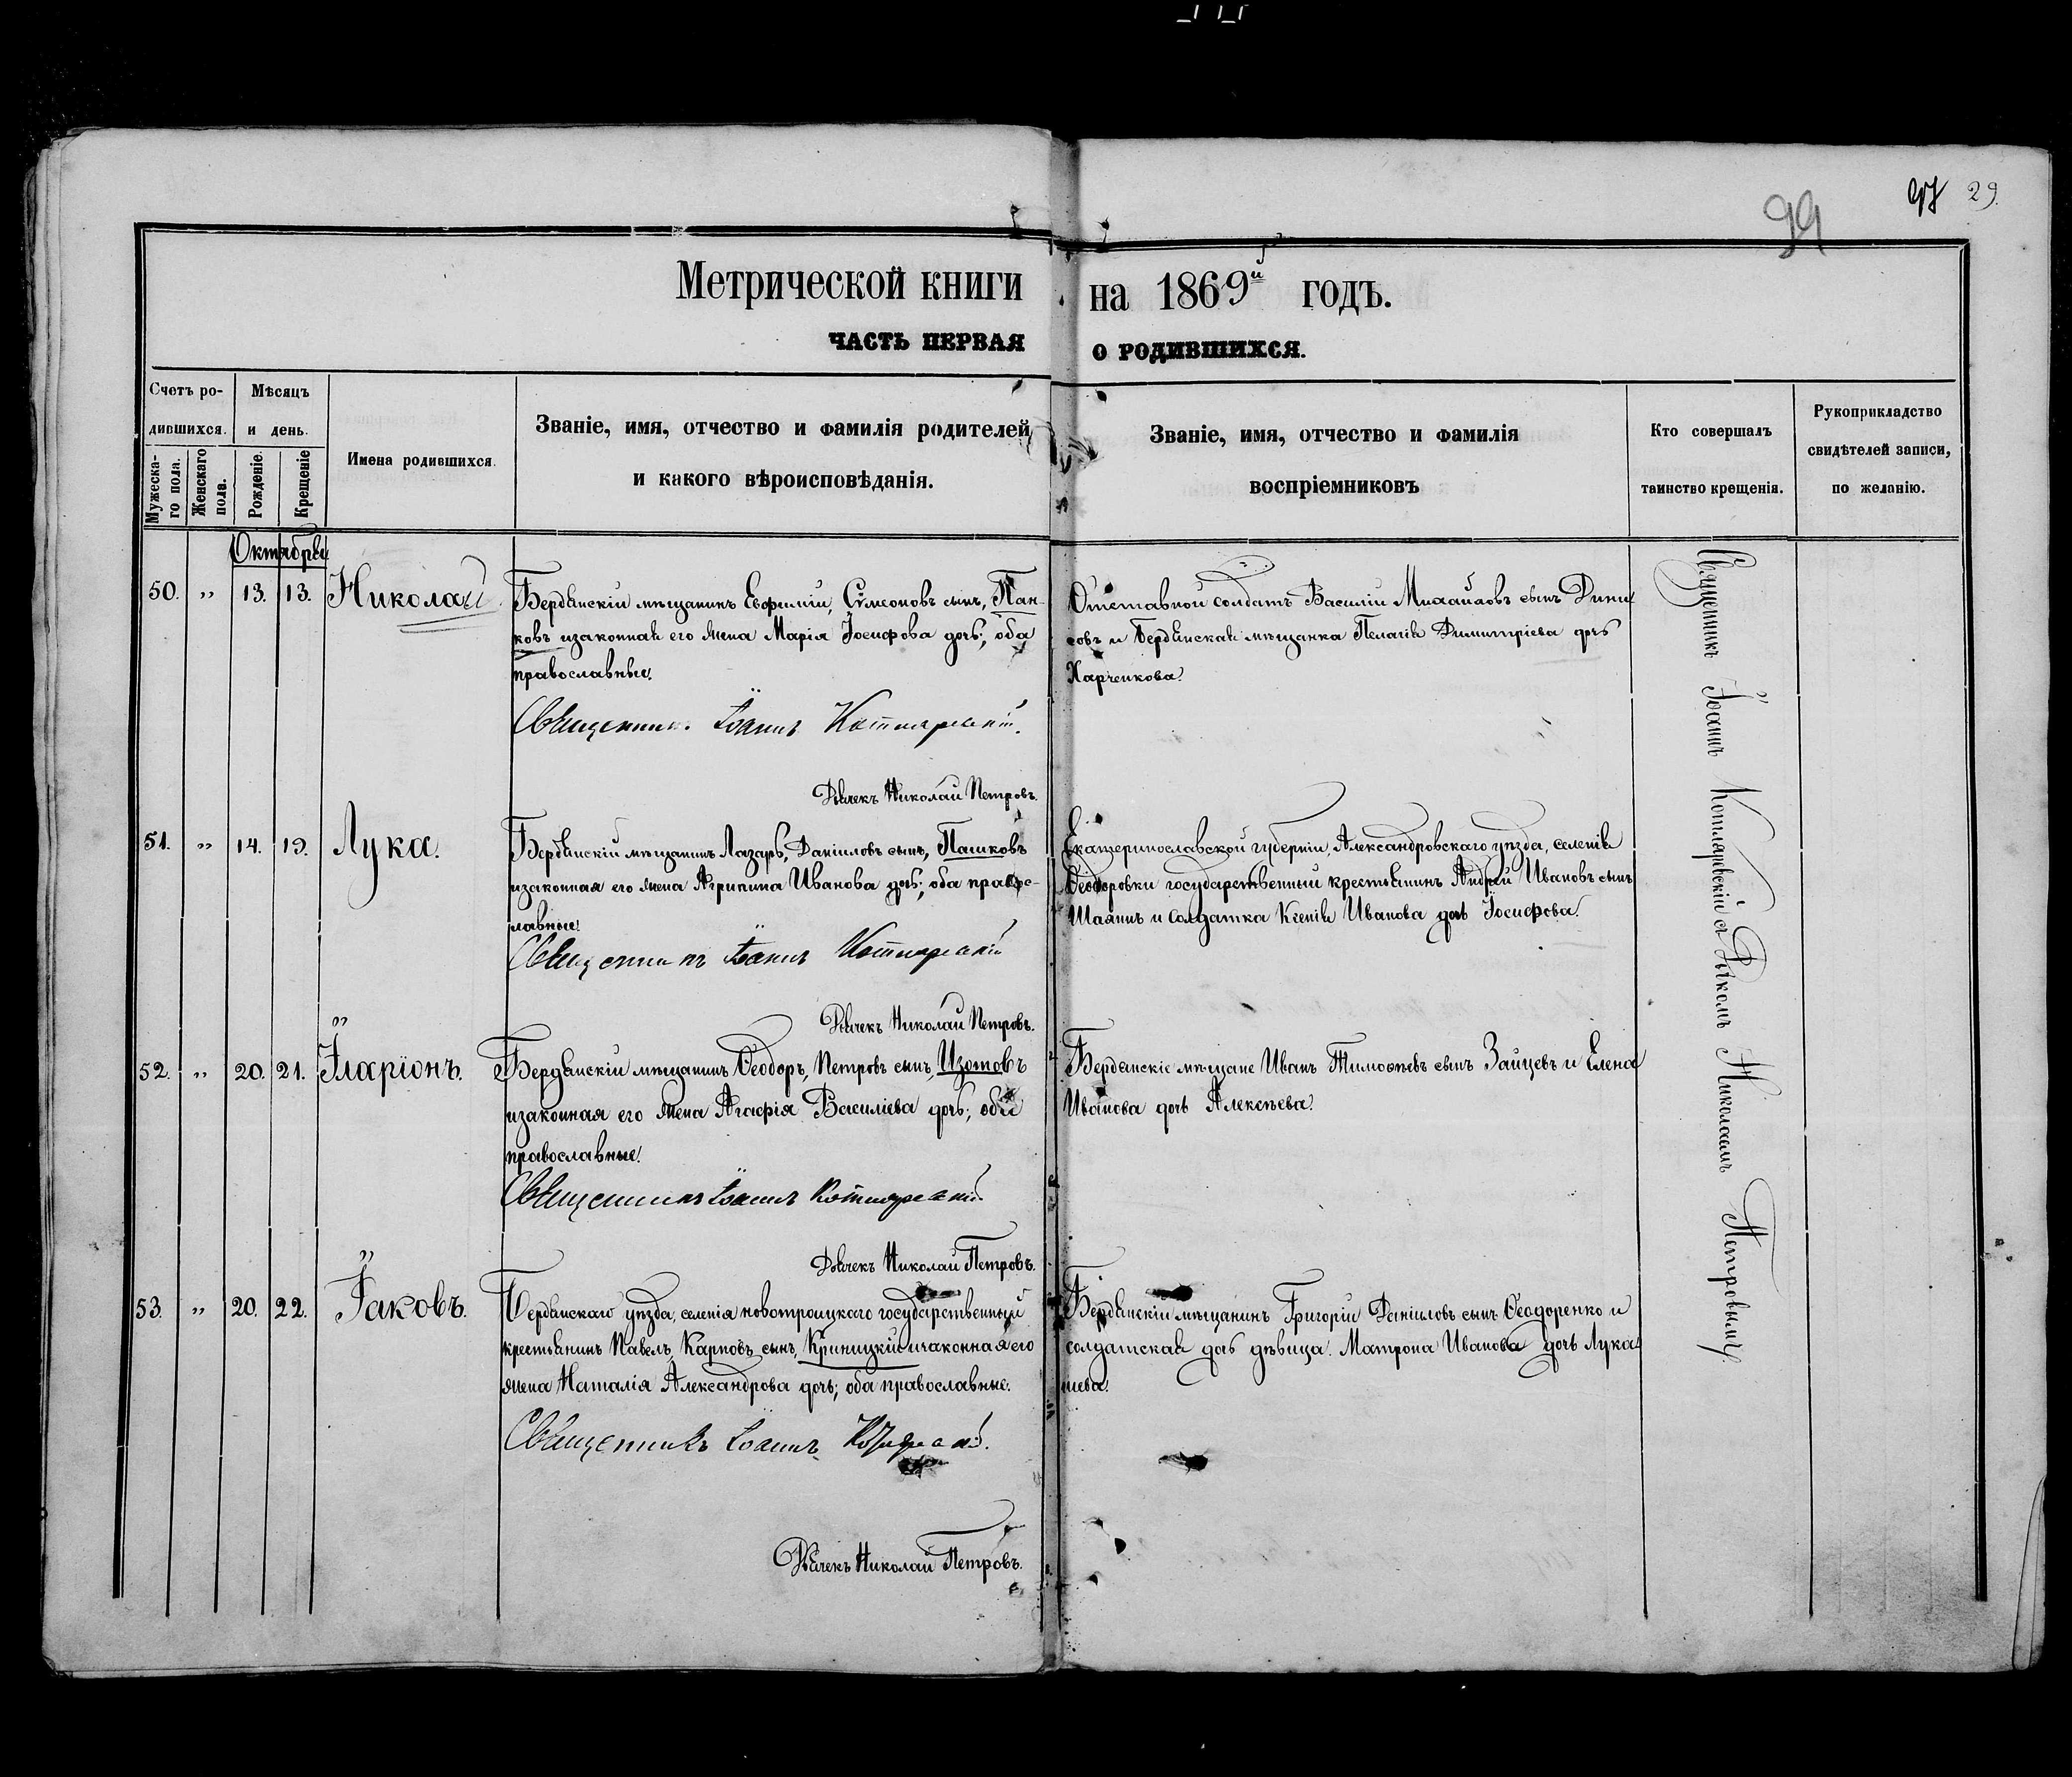 97 29.
99
Метрической книги на 1869й годъ.
ЧАСТЬ ПЕРВАЯ О РОДИВШИХСЯ.
Счетъ ро-
дившихся.
Мужеска-
го пола.
Женскаго
пола.
Мѣсяцъ
и день.
Рожденіе.
Крещеніе
Имена родившихся.
Званіе, имя, отчество и фамилія родителей,
и какого вѣроисповѣданія.
Званіе, имя, отчество и фамилія
воспріемниковъ
Кто совершалъ
таинство крещенія.
Рукоприкладство
свидѣтелей записи,
по желанію.
Октября
50. " 13. 13. Николай
Бердянскій мѣщанинъ Евфимій, Сѵмеоновъ сынъ, Пан-
ковъ изаконная его жена Марія Іосифова дочь; оба
православные.
Священникъ Іоаннъ Котляревскій.
Дьячекъ Николай Петровъ.
Отставной солдатъ Василій Михайловъ сынъ Дени
совъ и Бердянская мѣщанка Пелагія Димитріева дочь
Харченкова.
51. " 14. 19. Лука.
Бердянскій мѣщанинъ Лазарь, Даніиловъ сынъ, Пашковъ
изаконная его жена Агрипина Иванова дочь; оба правос-
лавные.
Священникъ Іоаннъ Котляревскій
Дьячекъ Николай Петровъ.
Екатеринославской губерніи, Александровскаго уѣзда, селенія
Ѳеодоровки государственный крестьянинъ Андрей Ивановъ сынъ
и солдатка Ксенія Иванова дочь Іосифова.
52. " 20. 21. Іларіонъ.
Бердянскій мѣщанинъ Ѳеодоръ, Петровъ сынъ, Изотовъ
изаконная его жена Агафія Василіева дочь; оба
православные.
Священникъ Іоаннъ Котляревскій
Дьячекъ Николай Петровъ.
Бердянскіе мѣщане Иванъ Тимоѳеевъ сынъ Зайцевъ и Елена
Иванова дочь Алексѣева.
53. " 20. 22. Іаковъ.
Бердянскаго уѣзда, селенія новотроицкого государственный
крестьянинъ Павелъ, Карповъ сынъ, Криницкій изаконная его
жена Наталія Александрова дочь; оба православные.
Священникъ Іоаннъ Котляревскій.
Дьячекъ Николай Петровъ.
Бердянскій мѣщанинъ Григорій Даніиловъ сынъ Ѳеодоренко и
солдатская дочь дѣвица Матрона Иванова дочь Лука
шева.
Священникъ Іоаннъ Котляревскій съ Дьячкомъ Николаемъ Петровымъ.